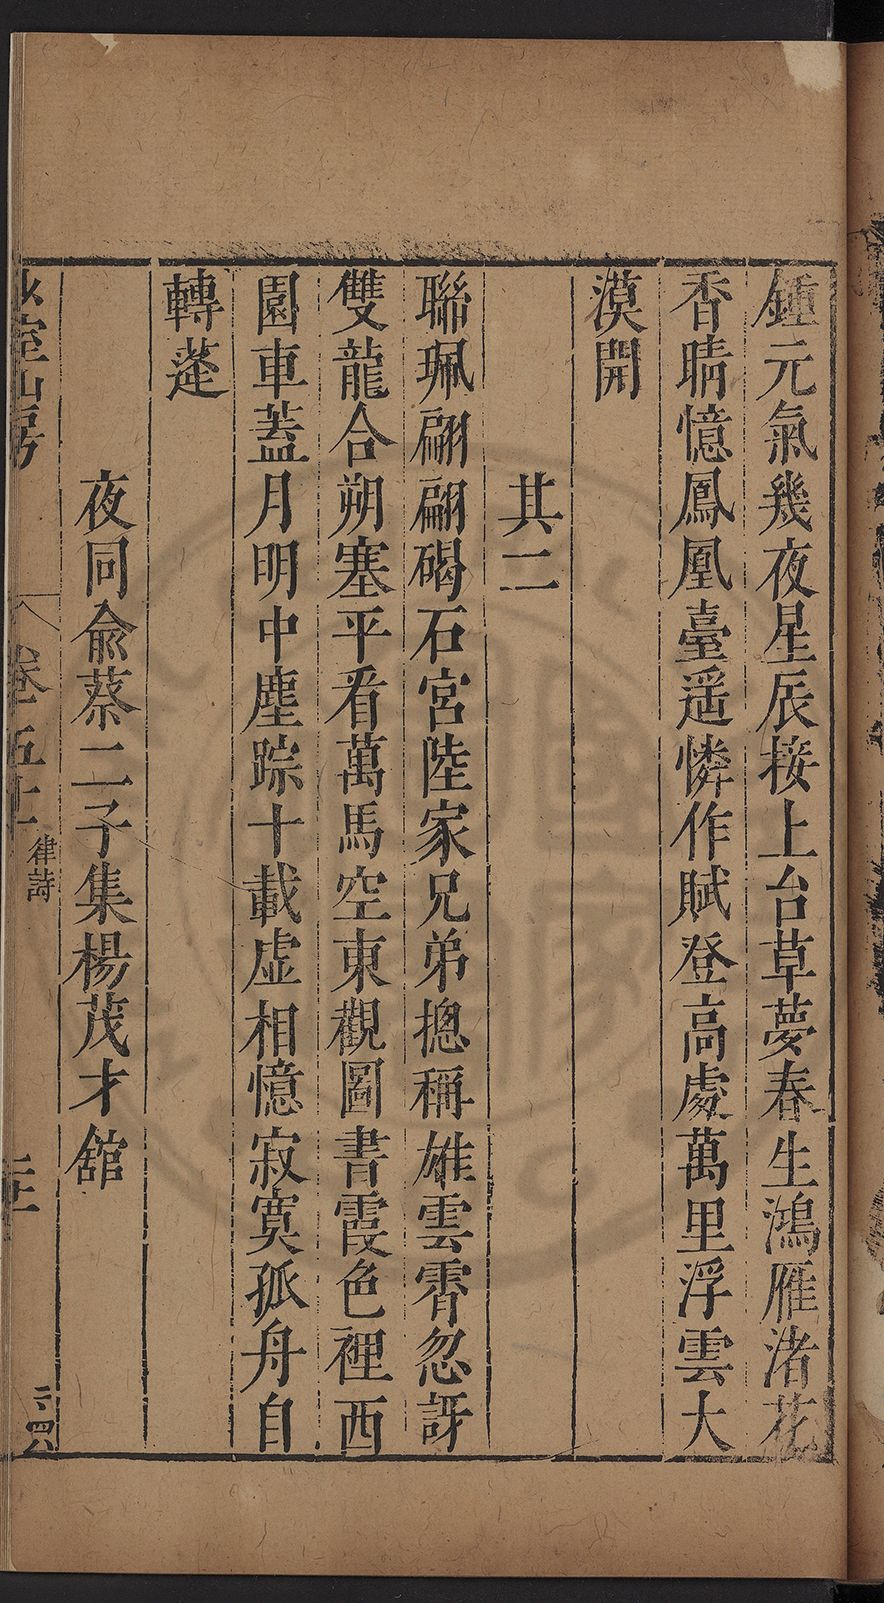 鍾元氣幾夜星辰接上台草夢春生鴻雁渚花
香晴憶鳳凰臺遥憐作賦登高處萬里浮雲大
漠開
其二
聯珮翩翩碣石宮陸家兄弟摠稱雄雲霄忽訝
雙龍合朔塞平看萬馬空東觀圖書霞色裡西
園車蓋月明中塵踪十載虚相憶寂寞孤舟自
轉蓬
夜同兪蔡二子集楊茂才舘
室山房
卷五十
律詩